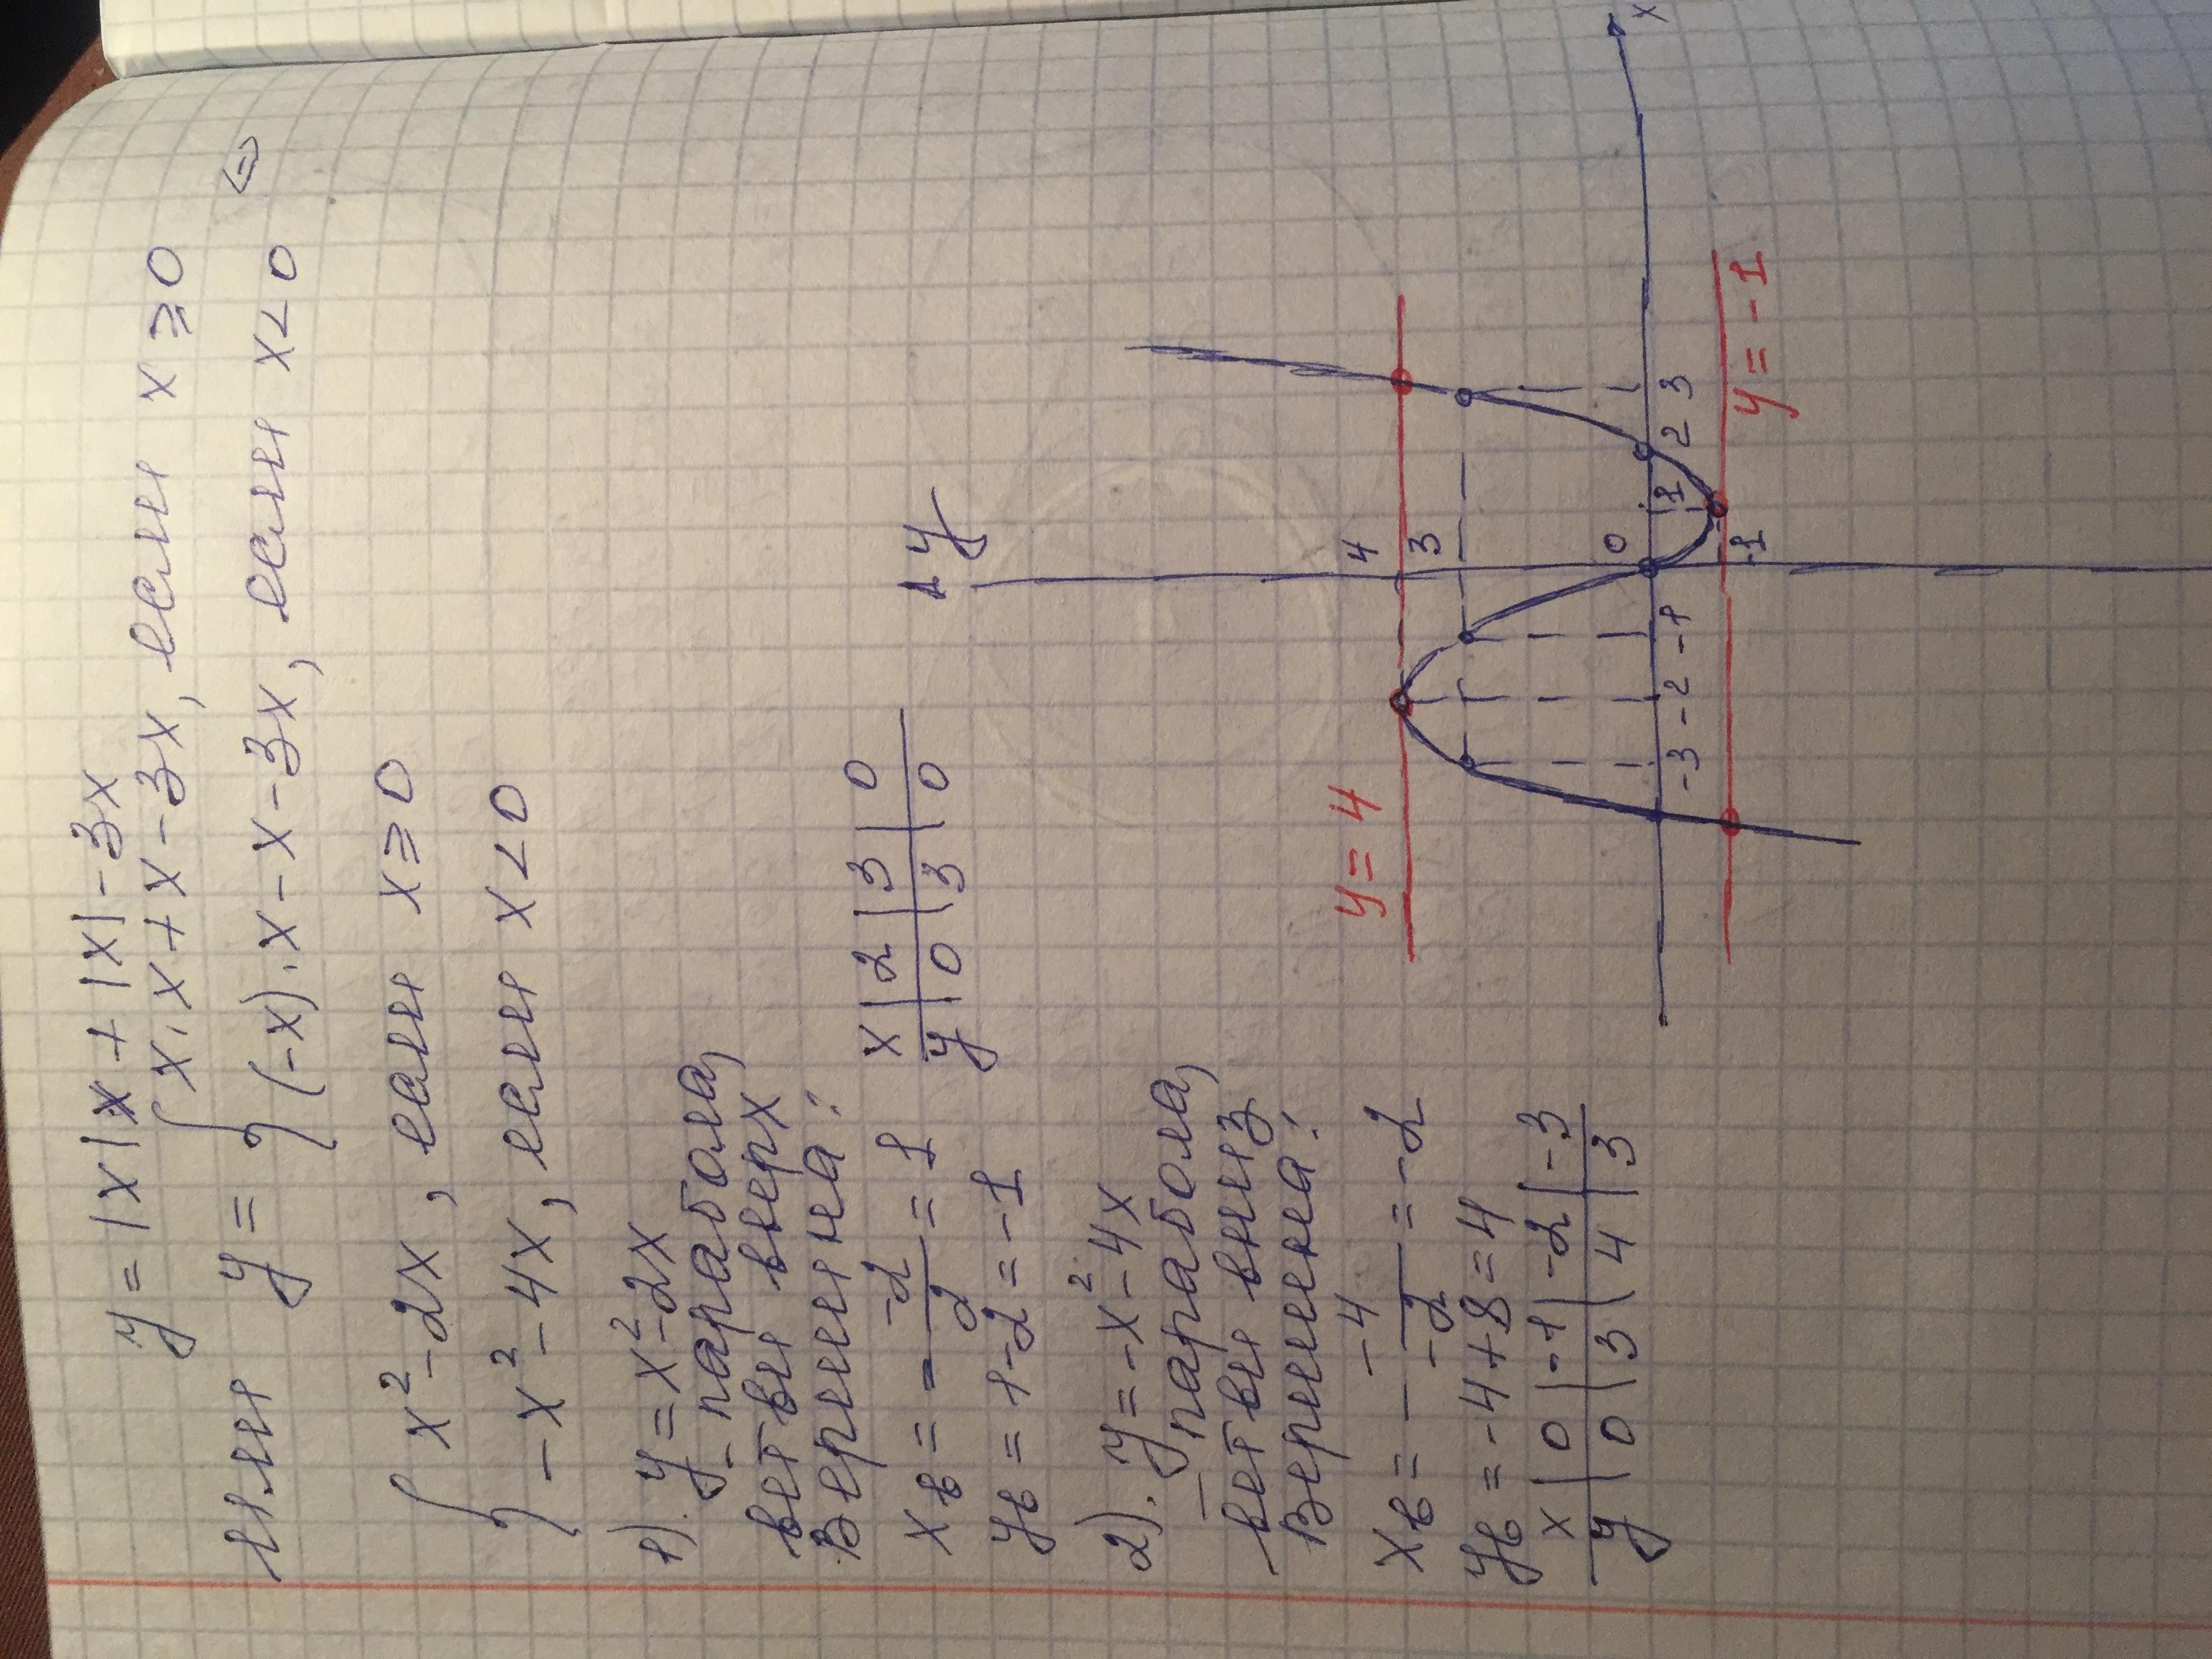 y = |x|x + |x| - 3x
или y = { x·x + x - 3x, если x ≥ 0
(-x)·x - x - 3x, если x < 0 (=)
{ x² - 2x, если x ≥ 0
-x² - 4x, если x < 0
1). y = x² - 2x
- парабола,
ветви вверх
Вершина:
xв = - -2/2 = 1
yв = 1 - 2 = -1
x | 2 | 3 | 0
y | 0 | 3 | 0
2). y = -x² - 4x
- парабола,
ветви вниз
Вершина:
xв = - -4/-2 = -2
yв = -4 + 8 = 4
x | 0 | -1 | -2 | -3
y | 0 | 3 | 4 | 3
y
y = 4
4
3
0
-3 -2 -1 1 2 3
x
-1
y = -1